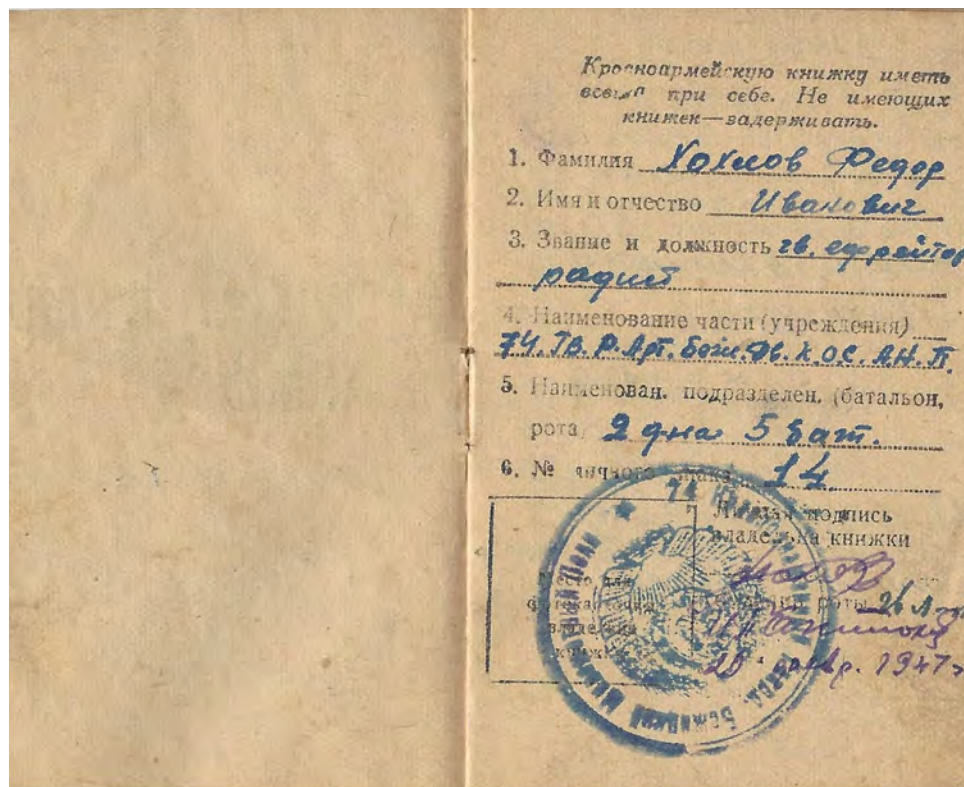 Красноармейскую книжку иметь
всегда при себе. Не имеющих
книжек—задерживать.
1. Фамилия Хохлов Федор
2. Имя и отчество Иванович
3. Звание и должность гв. ефрейтор
радист
4. Наименование части (учреждения)
74. ГВ. Р. Арт. Беж. Дв. К. О. С. А. Н. П.
5. Наименован. подразделен. (батальон,
рота) 2 дна 5 бат.
6. № личного знака 14
Личная подпись
владельца книжки
Место для
фотокарточки
владельца
книжки
роты
1947г